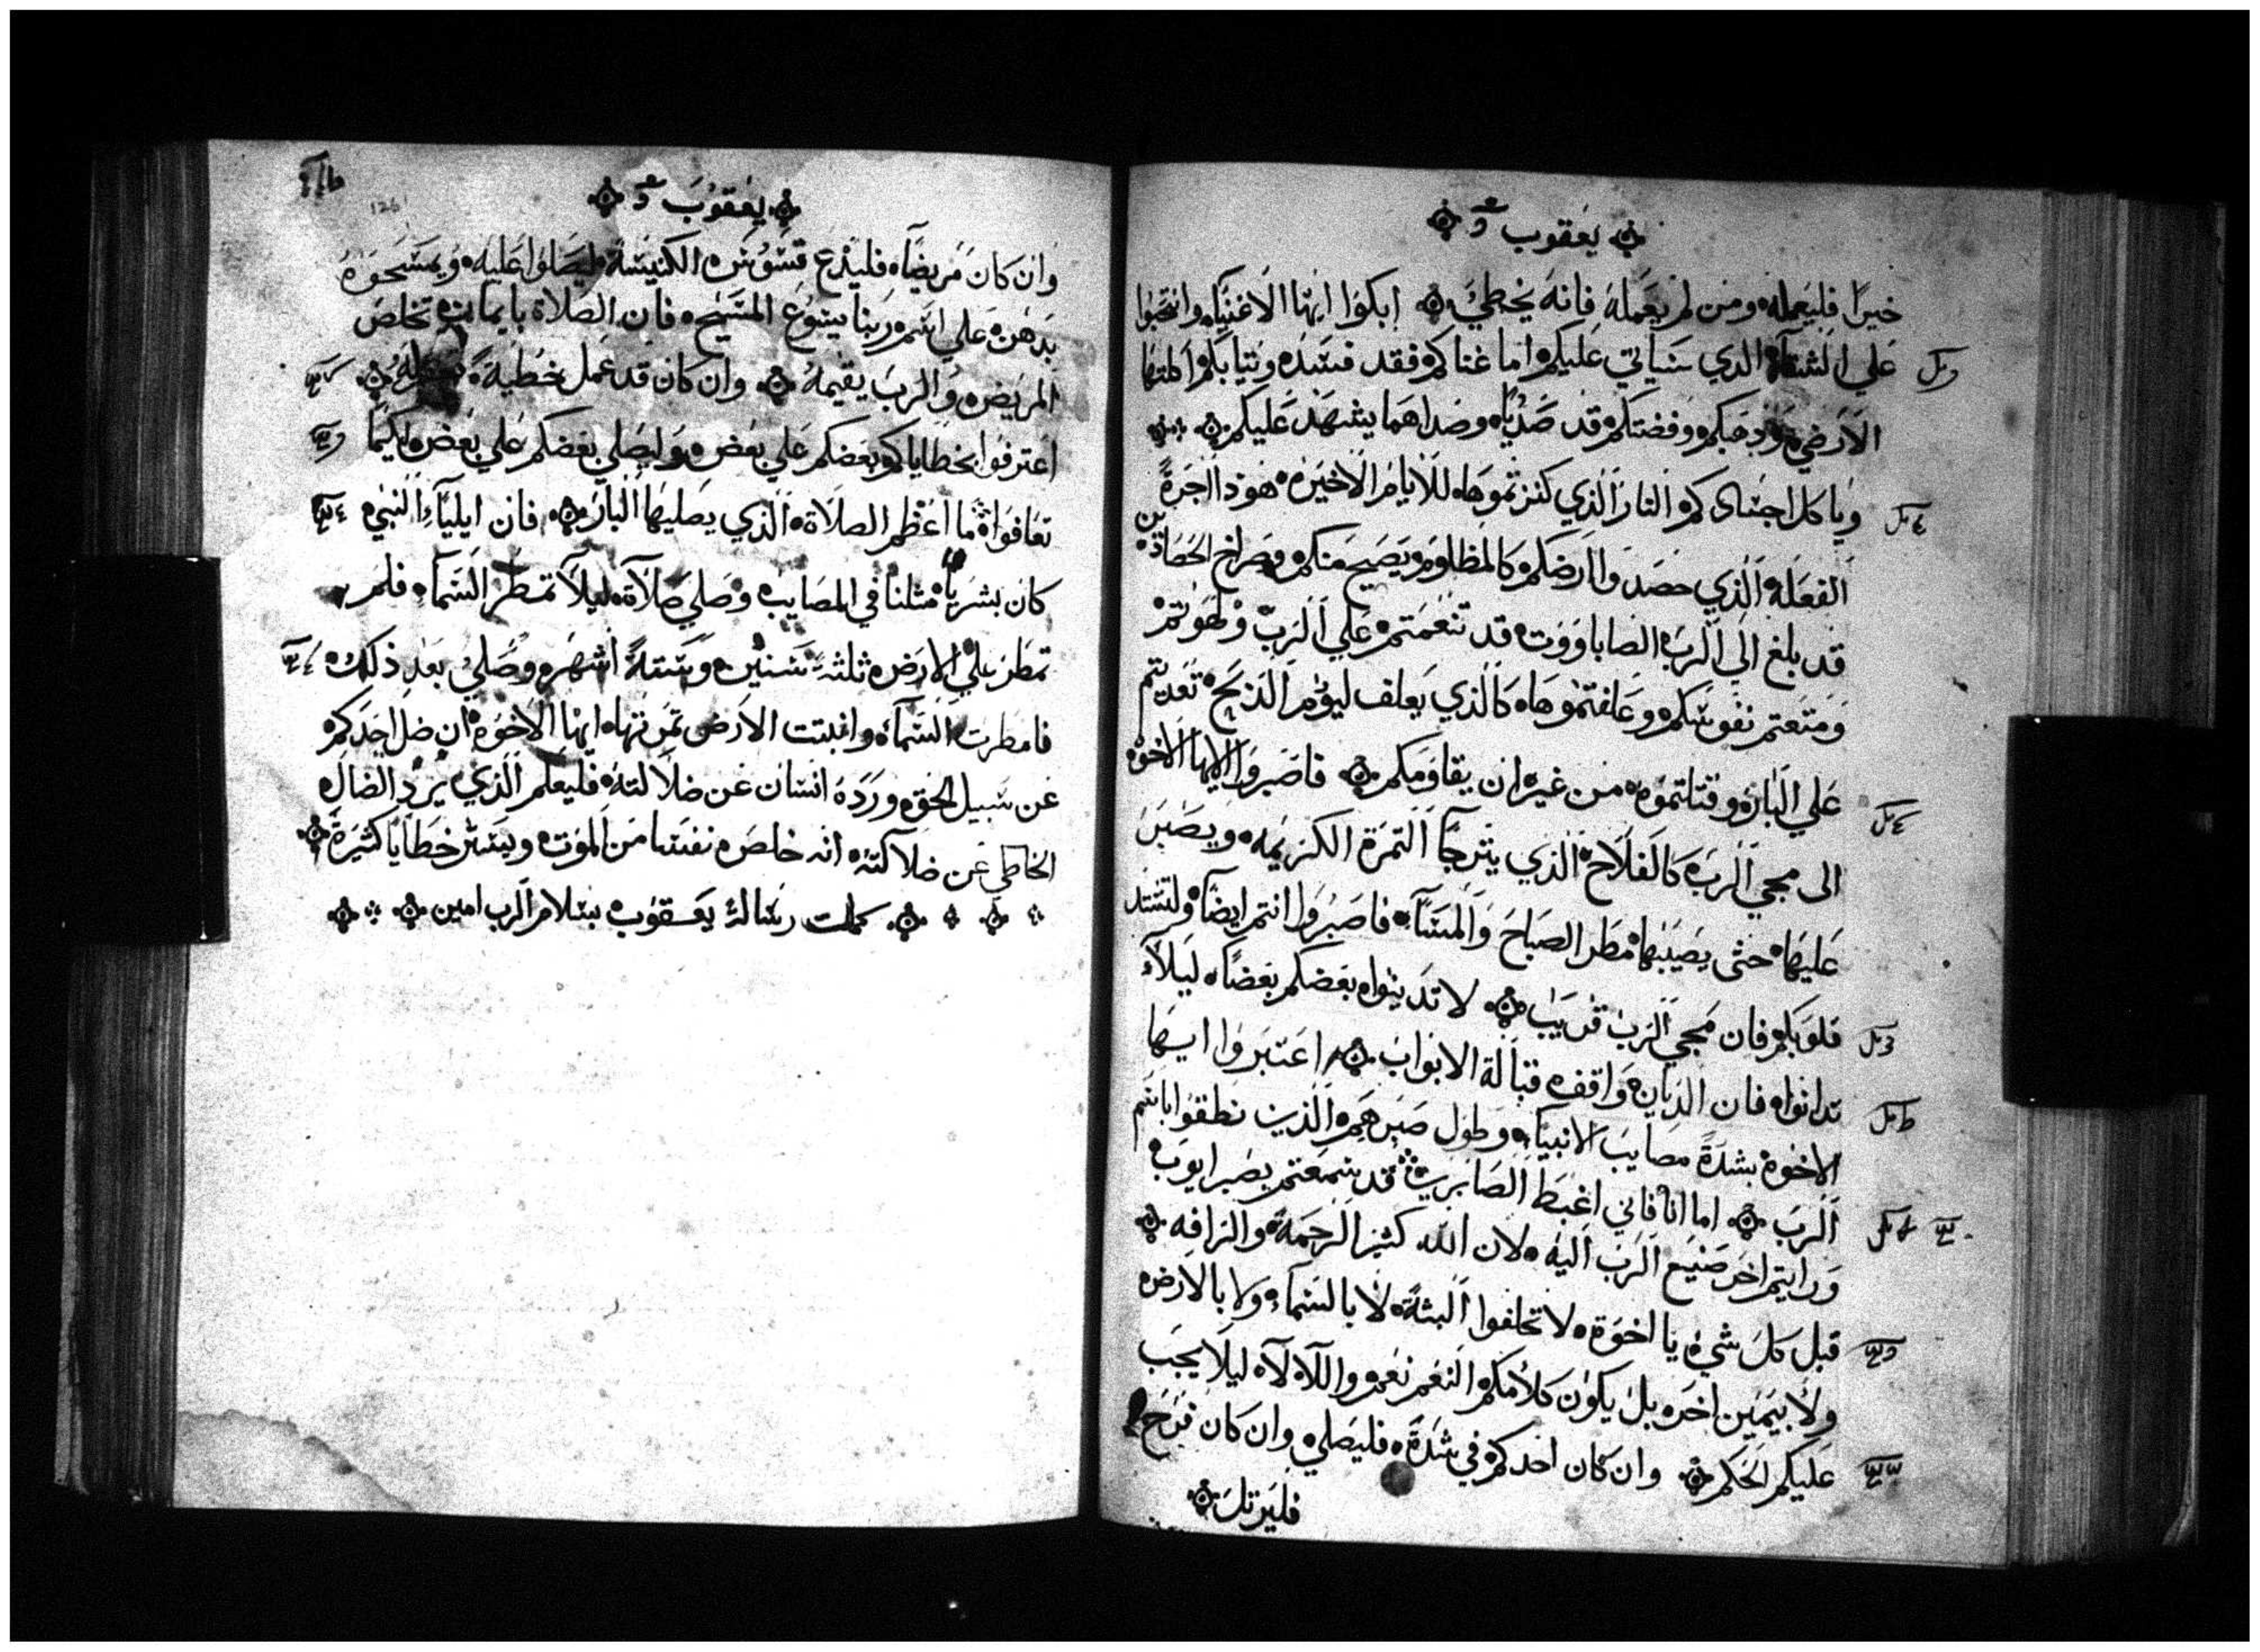 يعقوب
خيرًا فليعمله ومن لم يعمله فانه يخطي ابكوا ايها الاغنيا وانتحبوا
على الشقاء الذي سياتي عليكم اما غناكم فقد فسد وثيابكم اكلتها
الارضة وذهبكم وفضتكم قد صديا وصداهما يشهد عليكم
وياكل اجسادكم النار الذي كنزتموها للايام الاخيره هوذا اجرة
الفعله الذين حصدوا ارضكم كالمظلوم ويصيح منكم وصراخ الحصاد
قد بلغ الى الرب الصاباووت قد تنعمتم على الرب ولهوتم
ومتعتم نفوسكم وعلفتموها كالذي يعلف ليوم الذبح تعديتم
على البار وقتلتموه من غير ان يقاومكم فاصبروا ايها الاخوة
الى مجي الرب كالفلاح الذي يترجا الثمرة الكريمه ويصبر
عليها حتى يصيبها مطر الصباح والمساء فاصبروا انتم ايضا ولتشتد
قلوبكم فان مجي الرب قريب لا تدينوا بعضكم بعضًا ليلا
تدانوا فان الديان واقف قبالة الابواب اعتبروا ايها
الاخوة بشدة مصايب الانبياء وطول صبرهم الذين نطقوا باسم
الرب اما انا فاني اغبط الصابرين قد سمعتم بصبر ايوب
ورايتم اخر صنيع الرب اليه لان الله كثير الرحمة والرافه
قبل كل شي يا اخوة لا تحلفوا البتة لا بالسماء ولا بالارض
ولا بيمين اخر بل يكون كلامكم النعم نعم واللا لا ليلا يجب
عليكم الحكم وان كان احدكم في شدة فليصلي وان كان فرح
فليرتل
يعقوب
126
وان كان مريضًا فليدع قسوس الكنيسة ليصلوا عليه ويمسحوه
بدهن على اسم ربنا يسوع المسيح فان الصلاة بايمان تخلص
المريض والرب يقيمه وان كان قد عمل خطية
اعترفوا بخطاياكم بعضكم على بعض وليصلي بعضكم على بعض لكيما
تعافوا ما اعظم الصلاة الذي يصليها البار فان ايلياء النبي
كان بشريا مثلنا في المصايب وصلي صلاة ليلا تمطر السماء فلم
تمطر على الارض ثلثة سنين وستة اشهر وصلي بعد ذلك
فامطرت السماء وانبتت الارض ثمرتها ايها الاخوة ان ضل احدكم
عن سبيل الحق ورده انسان عن ضلالته فليعلم الذي يرد الضال
الخاطي عن ضلالته انه خلص نفسا من الموت ويستر خطايا كثيرة
كملت رسالة يعقوب بسلام الرب امين